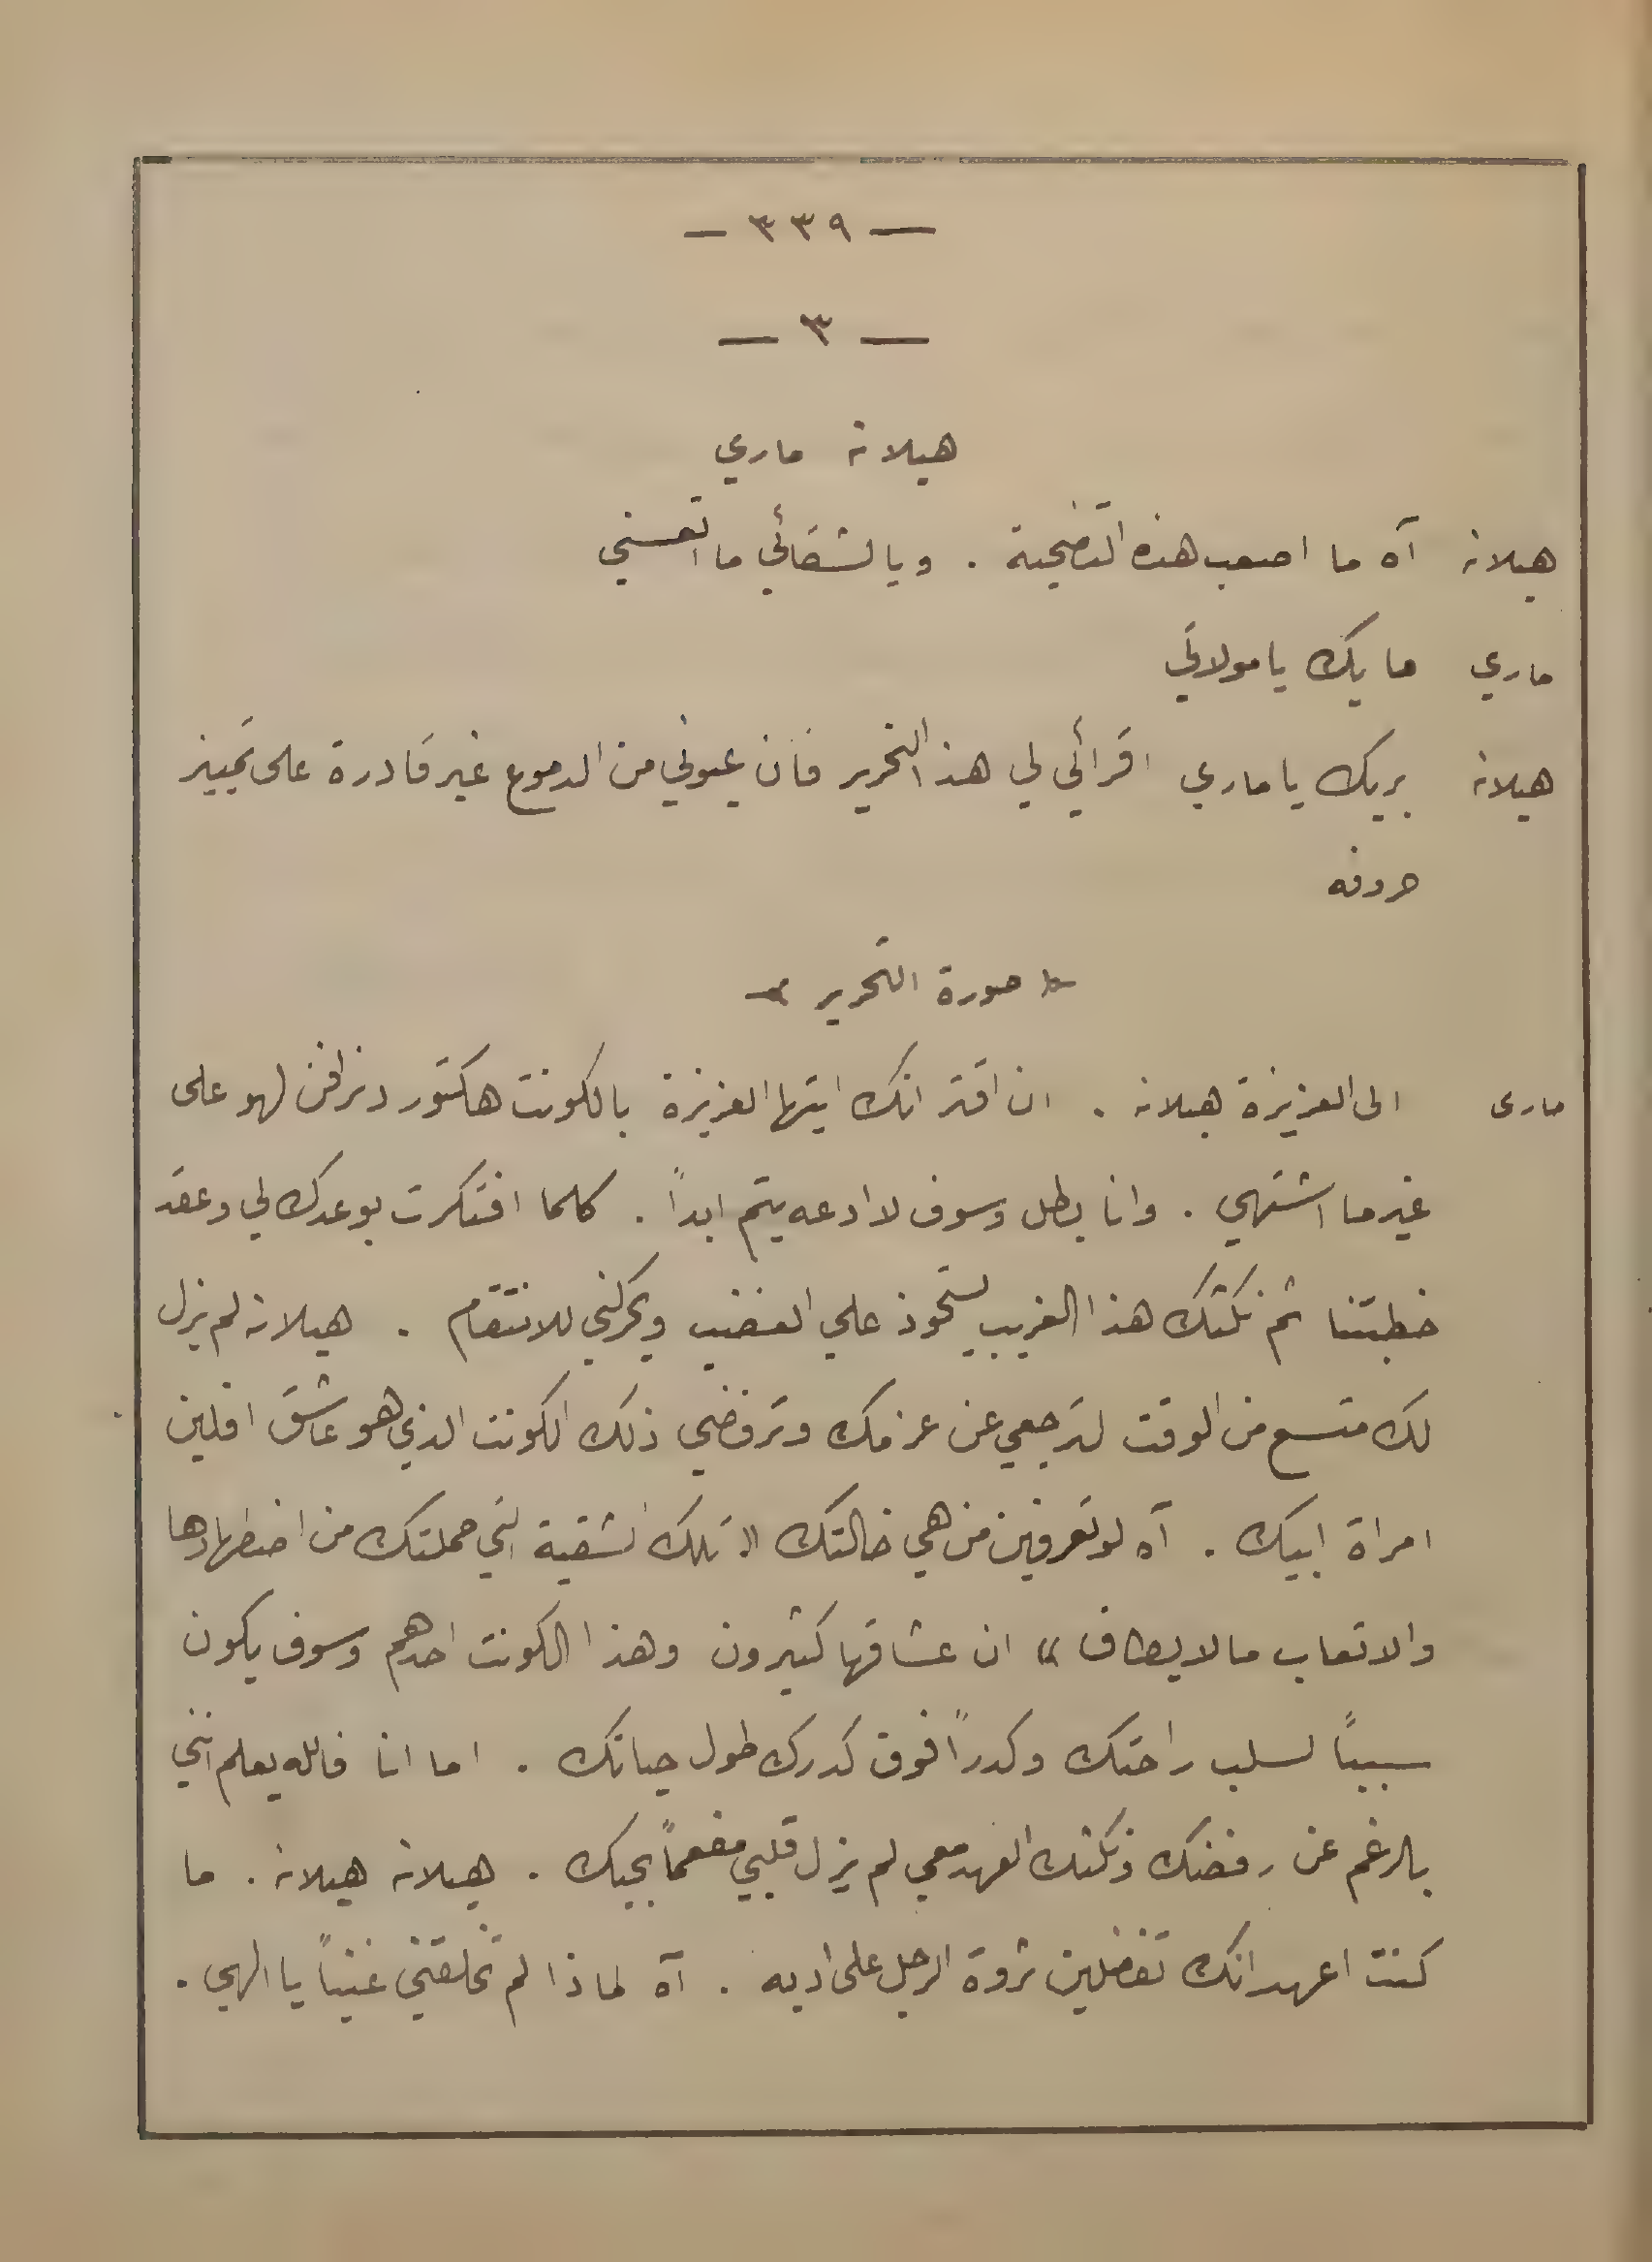 — ٣٣٩ —
— ٣ —
هيلانة ماري
هيلانة آه ما اصعب هذه التضحية . ويا لشقائي ما اتعسني
ماري ما بك يا مولاتي
هيلانة بربك يا ماري اقرائي لي هذا التحرير فان عيوني من الدموع غير قادرة على تمييز
حروفه
صورة التحرير
ماري الى العزيزة هيلانة . ان اقترانك ايتها العزيزة بالكونت هكتور دنرافن لهو على
غير ما اشتهي . وانا بطل وسوف لا ادعه يتم ابداً . كلما افتكرت بوعدك لي وعقد
خطبتنا ثم نكثك هذا الغريب يستحوذ علي الغضب ويحركني للانتقام . هيلانة لم يزل
لك متسع من الوقت لترجعي عن عزمك وترفضي ذلك الكونت الذي هو عاشق افلين
امراة ابيك . آه لو تعرفين من هي خالتك « تلك الشقية التي حملتك من اضطهادها
والاتعاب ما لا يطاق » ان عشاقها كثيرون وهذا الكونت احدهم وسوف يكون
سبباً لسلب راحتك وكدراً فوق كدرك طول حياتك . اما انا فالله يعلم انني
بالرغم عن رفضك ونكثك العهد معي لم يزل قلبي مفعماً بحبك . هيلانة هيلانة . ما
كنت اعهد انك تفضلين ثروة الرجل على ادبه . آه لماذا لم تخلقني غنياً يا الهي .